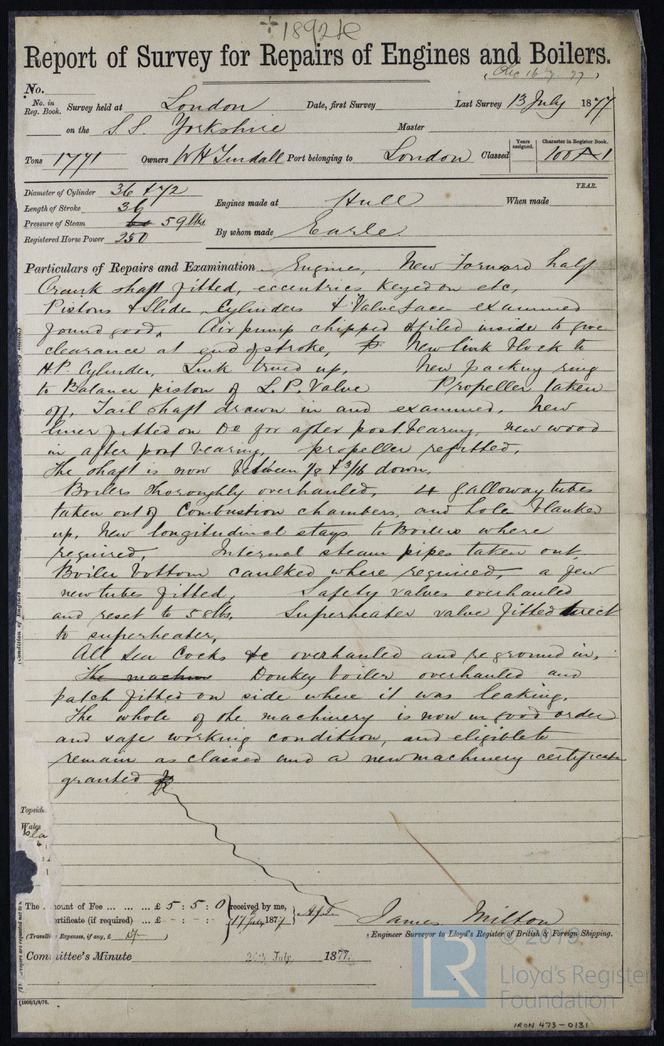 18921c
Report of Survey for Repairs of Engines and Boilers.
No.
No. in Reg. Book. Survey held at London Date, first Survey Last Survey 13 July 1877
on the S.S. Yorkshire Master
Tons 1771 Owners W H Tindall Port belonging to London Classed Years assigned. Character in Register Book. 100 A 1
Diameter of Cylinder 36 & 72
Length of Stroke 36
Pressure of Steam 59 lbs
Registered Horse Power 250
Engines made at Hull When made YEAR.
By whom made Earle
Particulars of Repairs and Examination Engines, New Forward half
Crank shaft fitted, eccentrics keyed on etc,
Pistons & Slides, Cylinders & Valve faces examined
found good, Air pump chipped & filed inside to give
clearance at end of stroke, New link block to
H.P. Cylinder, Link trued up, New packing ring
to Balance piston of L.P. Valve Propeller taken
off, Tail shaft drawn in and examined, New
liner fitted on for after post bearing, new wood
in after post bearing, propeller refitted,
The shaft is now between 1/8 & 3/16 down.
Boilers thoroughly overhauled, 4 Galloway tubes
taken out of Combustion chambers, and holes blanked
up, New longitudinal stays to Boilers where
required, Internal steam pipes taken out,
Boiler bottom caulked where required, a few
new tubes fitted, Safety valves overhauled
and reset to 58 lbs, Superheater valve fitted direct
to superheater,
All Sea Cocks &c overhauled and reground in,
The machin Donkey boiler overhauled and
patch fitted on side where it was leaking,
The whole of the machinery is now in good order
and safe working condition, and eligible to
remain as classed and a new machinery certificate
granted
Topside
Wales
The Amount of Fee ... ... ... £ 5 : 5 : 0 received by me,
Certificate (if required) ... £ - : - : - 17 July 1877
(Travelling Expenses, if any, £ )
James Milton
Engineer Surveyor to Lloyd's Register of British & Foreign Shipping.
Committee's Minute July 1877
© 2019
LR
Lloyd's Register
Foundation
IRON 473-0131